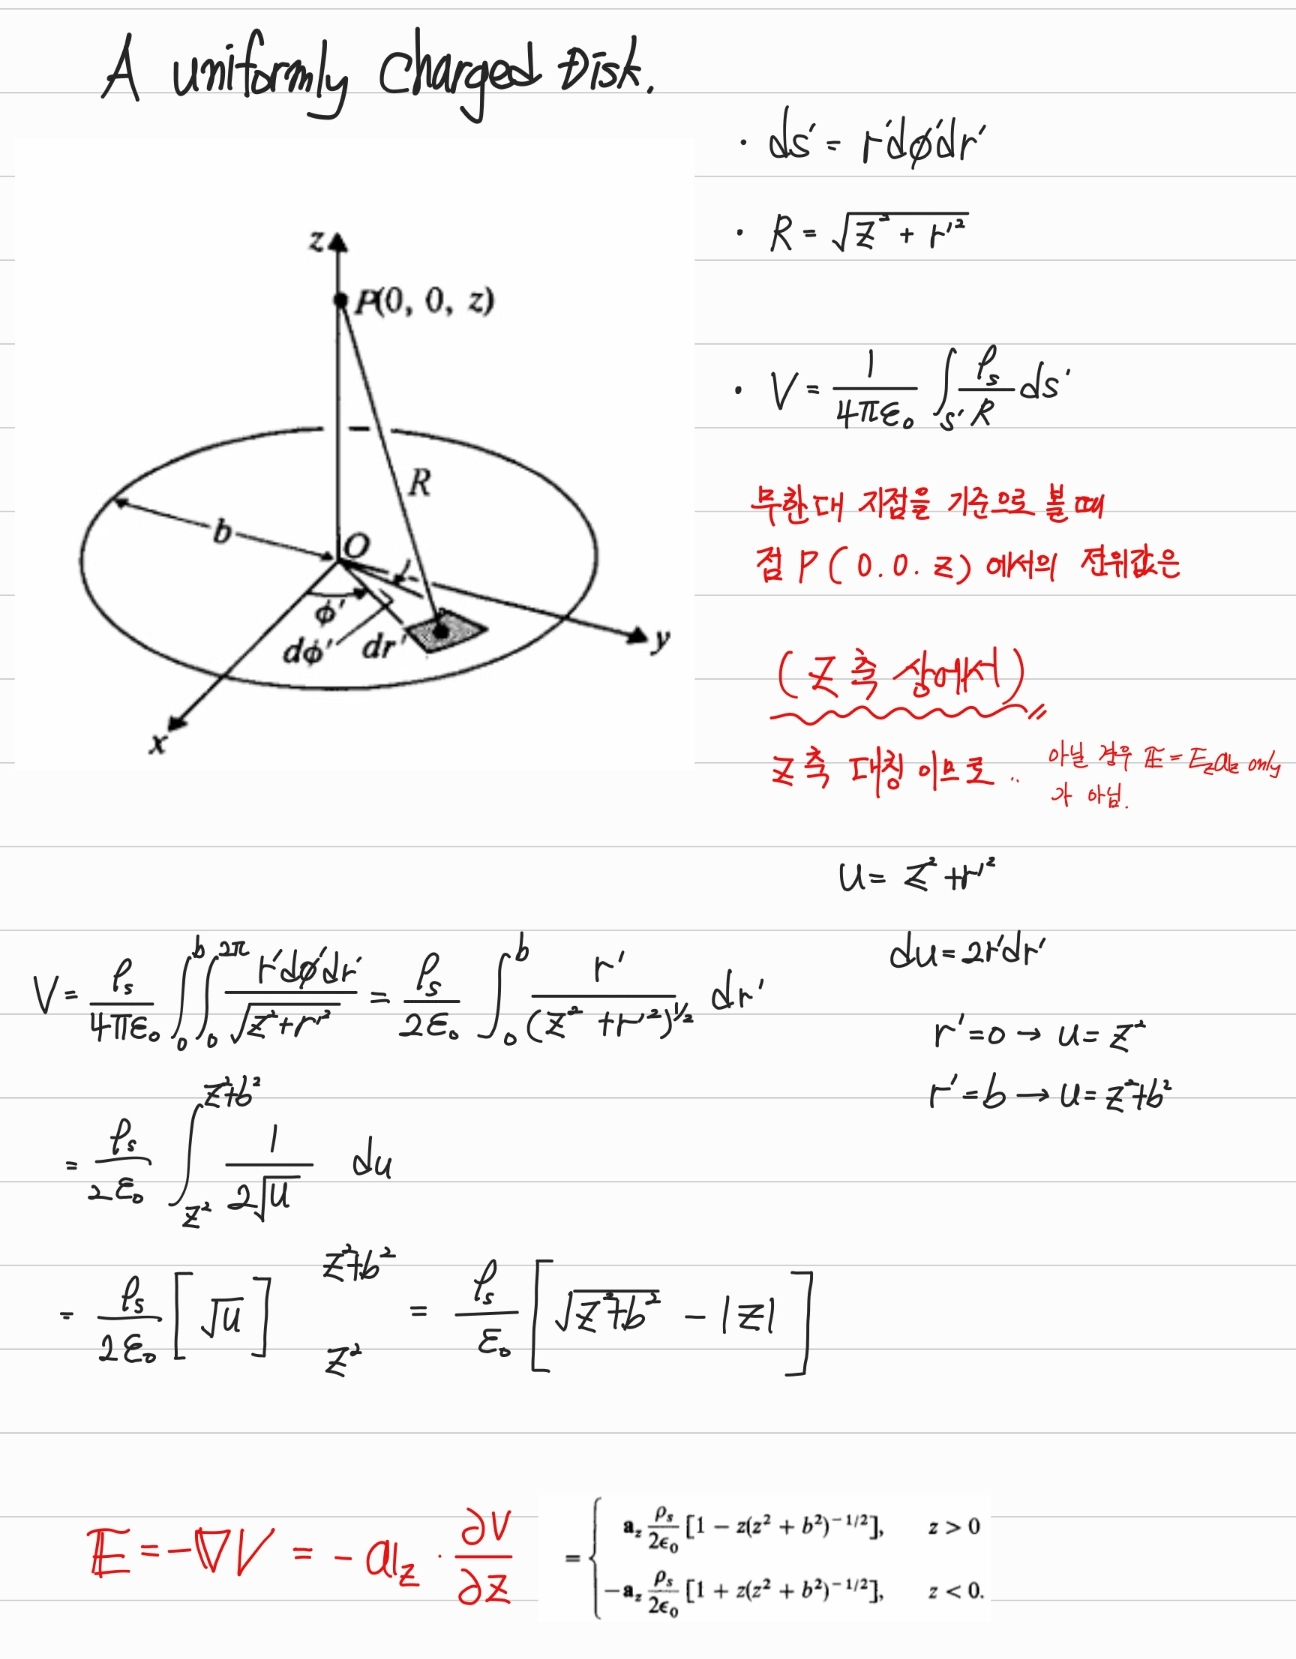 A uniformly charged Disk.
· ds' = r'dφ'dr'
· R = √(z² + r'²)
z
P(0, 0, z)
· V = 1/(4πε₀) ∫_S' ρₛ/R ds'
R
b
O
무한대 지점을 기준으로 볼 때
점 P (0.0.z) 에서의 전위값은
φ'
dφ'
dr'
y
x
(z축 상에서)
z축 대칭이므로 ..
아닐 경우 E = E_z a_z only
가 아님.
u = z² + r'²
du = 2r'dr'
r' = 0 → u = z²
r' = b → u = z²+b²
V = ρₛ/(4πε₀) ∫₀^b ∫₀^2π r'dφ'dr'/√(z²+r'²) = ρₛ/(2ε₀) ∫₀^b r'/(z² + r'²)^½ dr'
= ρₛ/(2ε₀) ∫_z²^(z²+b²) 1/(2√u) du
= ρₛ/(2ε₀) [√u]_z²^(z²+b²) = ρₛ/ε₀ [√(z²+b²) - |z|]
E = -∇V = -a_z · ∂V/∂z
= { a_z ρₛ/(2ε₀) [1 − z(z² + b²)^(−1/2)], z > 0
−a_z ρₛ/(2ε₀) [1 + z(z² + b²)^(−1/2)], z < 0.